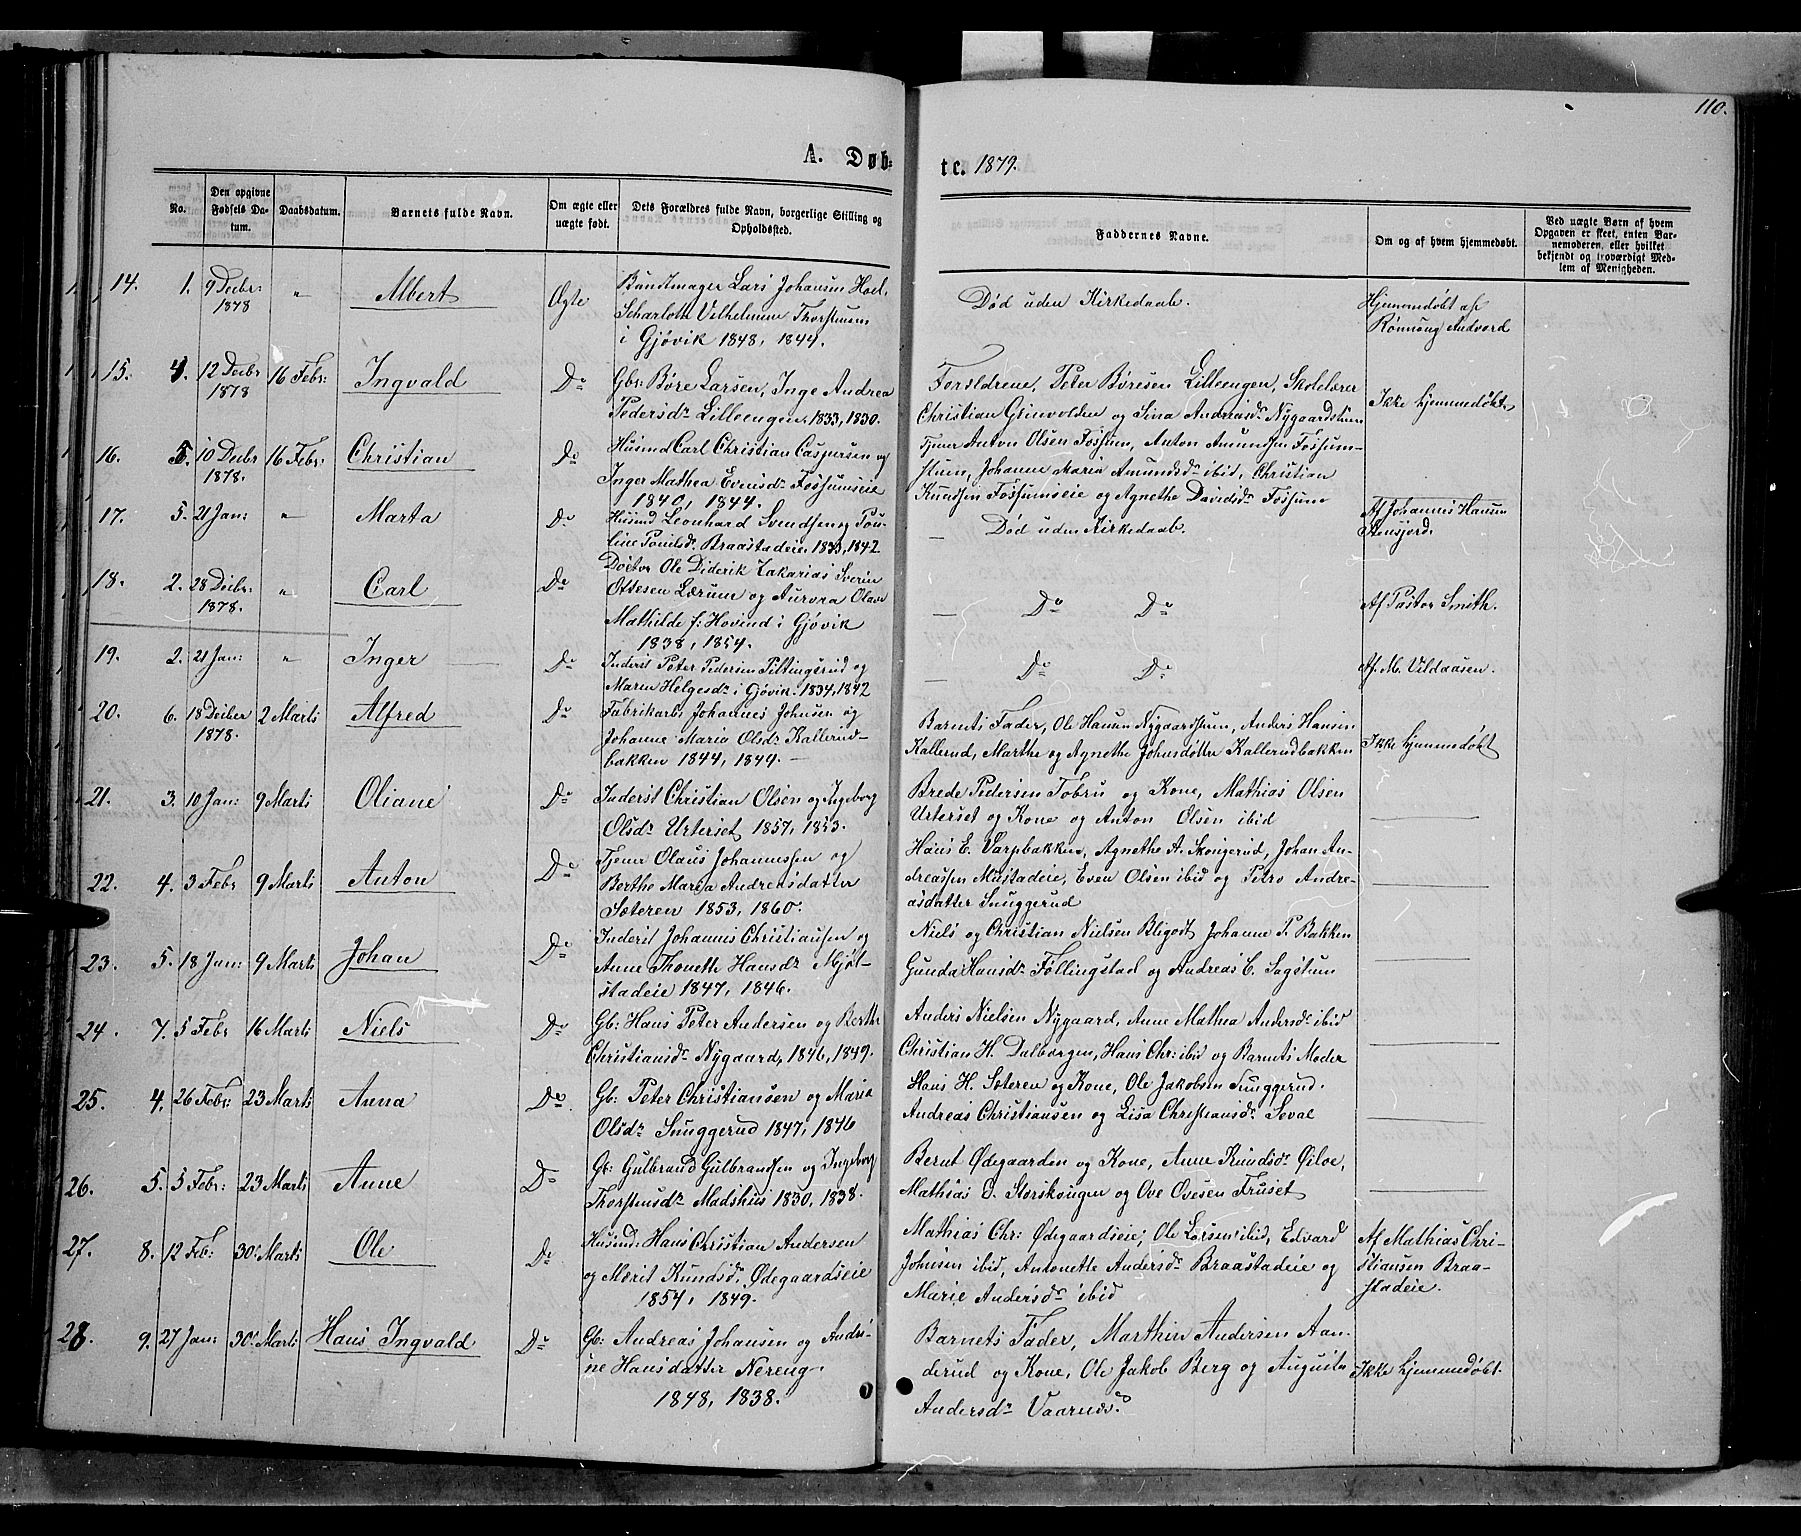 110.
A. Døb: tc. 1879.
No.
Den opgivne Fødsels Da-tum.
Daabsdatum.
Barnets fulde Navn.
Om ægte eller uægte født.
Dets Forældres fulde Navn, borgerlige Stilling og Opholdssted.
Faddernes Navne.
Om og af hvem hjemmedøbt.
Ved uægte Børn af hvem Opgaven er skeet, enten Bar-nemoderen, eller hvilket bekjendt og troværdigt Med-lem af Menigheden.
14. 1. 9 Decbr: 1878 " Albert Ægte
Bundtmager Lars Johansen Hoel,
Scharlotte Vilhelmine Thorstensen
i Gjøvik 1848, 1844.
Død uden Kirkedaab.
Hjemmedøbt af
Rønnoug Andvord
15. 4. 12 Decbr 1878 16 Febr: Ingvald Do
Gbr: Børe Larsen, Inge Andrea
Pedersdr Lilleengen 1833, 1830.
Forældrene, Peter Børesen Lilleengen, Skolelærer
Christian Grinvolden og Sina Andreasdr Nygaardstuen
Ikke hjemmedøbt
16. 5. 10 Decbr 1878. 16 Febr: Christian Do
Husmd Carl Christian Caspersen og
Inger Mathea Evensdr Fossumseie
1840, 1844.
Tjener Anton Olsen Fossum, Anton Amundsen Fossum-
stuen, Johanne Maria Amundsdr ibid, Christian
Knudsen Fossumseie og Agnethe Davidsdr Fossum
17. 5. 21 Jan: " Marta Do
Husmd Leonhard Svendsen og Pau-
line Poulsdr Braastadeie 1833, 1842
Død uden Kirkedaab.
Af Johannes Hansen
Stensjord.
18. 2. 28 Decbr: 1878. " Carl Do
Doctor Ole Diderik Zakarias Sverin
Ottesen Lærum og Aurora Olava
Mathilde f: Hovind i Gjøvik
1838, 1854.
— Do Do
Af Pastor Smith.
19. 2. 21 Jan: " Inger Do
Inderst Peter Pedersen Piltingsrud og
Maren Helgesdr i Gjøvik. 1834, 1842
— Do Do
Af M. Vildaasen.
20. 6. 18 Decber 1878. 2 Marts Alfred Do
Fabrikarb. Johannes Johnsen og
Johanne Maria Olsdr Kallerud-
bakken 1844, 1849. —
Barnets Fader, Ole Hansen Nygaardstuen, Anders Hansen
Kallerud, Marthe og Agnethe Johnsdøttre Kallerudbakken
Ikke hjemmedøbt
21. 3. 10 Jan: 9 Marts Oliane Do
Inderst Christian Olsen og Ingeborg
Olsdr Urterset 1857, 1853.
Brede Pedersen Tobru og Kone, Mathias Olsen
Urterset og Kone og Anton Olsen ibid
22. 4. 3 Febr 9 Marts Anton Do
Tjener Olaus Johannessen og
Berthe Maria Andreasdatter
Sæteren 1853, 1860.
Hans E. Varpbakken, Agnethe A. Skongerud, Johan An-
dreassen Mustadeie, Even Olsen ibid og Petra Andre-
asdatter Snuggerud
23. 5. 18 Jan: 9 Marts Johan Do
Inderst Johannes Christiansen og
Anne Thonette Hansdr Mjøl-
stadeie 1847, 1846.
Niels og Christian Nielsen Bligodt Johanne P. Bakken
Gunda Hansdr Føllingstad og Andreas C. Sagstuen
24. 7. 5 Febr 16 Marts Niels Do
Gb: Hans Peter Andersen og Berthe
Christiansdr Nygaard, 1846, 1849.
Anders Nielsen Nygaard, Anne Mathea Andersdr ibid
Christian H. Dalborgen, Hans Chr: ibid og Barnets Moder
25. 4. 26 Febr: 23 Marts Anna Do
Gb: Peter Christiansen og Maria
Olsdr Snuggerud 1847, 1846
Hans H. Sæteren og Kone, Ole Jakobsen Snuggerud.
Andreas Christiansen og Lisa Christiansdr Seval
26. 5. 5 Febr: 23 Marts Anne Do
Gb: Gulbrand Gulbrandsen og Ingeborg
Thorstensdr Madshus 1830, 1838.
Bernt Ødegaarden og Kone, Anne Knudsdr Øiloe,
Mathias D. Storskougen og Ove Ovesen Fruset
27. 8. 12 Feb: 30 Marts Ole Do
Husmd: Hans Christian Andersen
og Marit Knudsdr Ødegaardseie
1854, 1849.
Mathias Chr: Ødegaardseie, Ole Larsen ibid, Edvard
Johnsen ibid, Antonette Andersdr Braastadeie og
Marie Andersdr ibid
Af Mathias Chri-
stiansen Braa-
stadeie.
28. 9. 27 Jan: 30 Marts Hans Ingvald Do
Gb: Andreas Johansen og Andri-
ne Hansdatter Nereng.
1848, 1838.
Barnets Fader, Marthin Andersen Aan-
derud og Kone, Ole Jakob Berg og Augusta
Andersdr Vaarnæs.
Ikke hjemmedøbt.